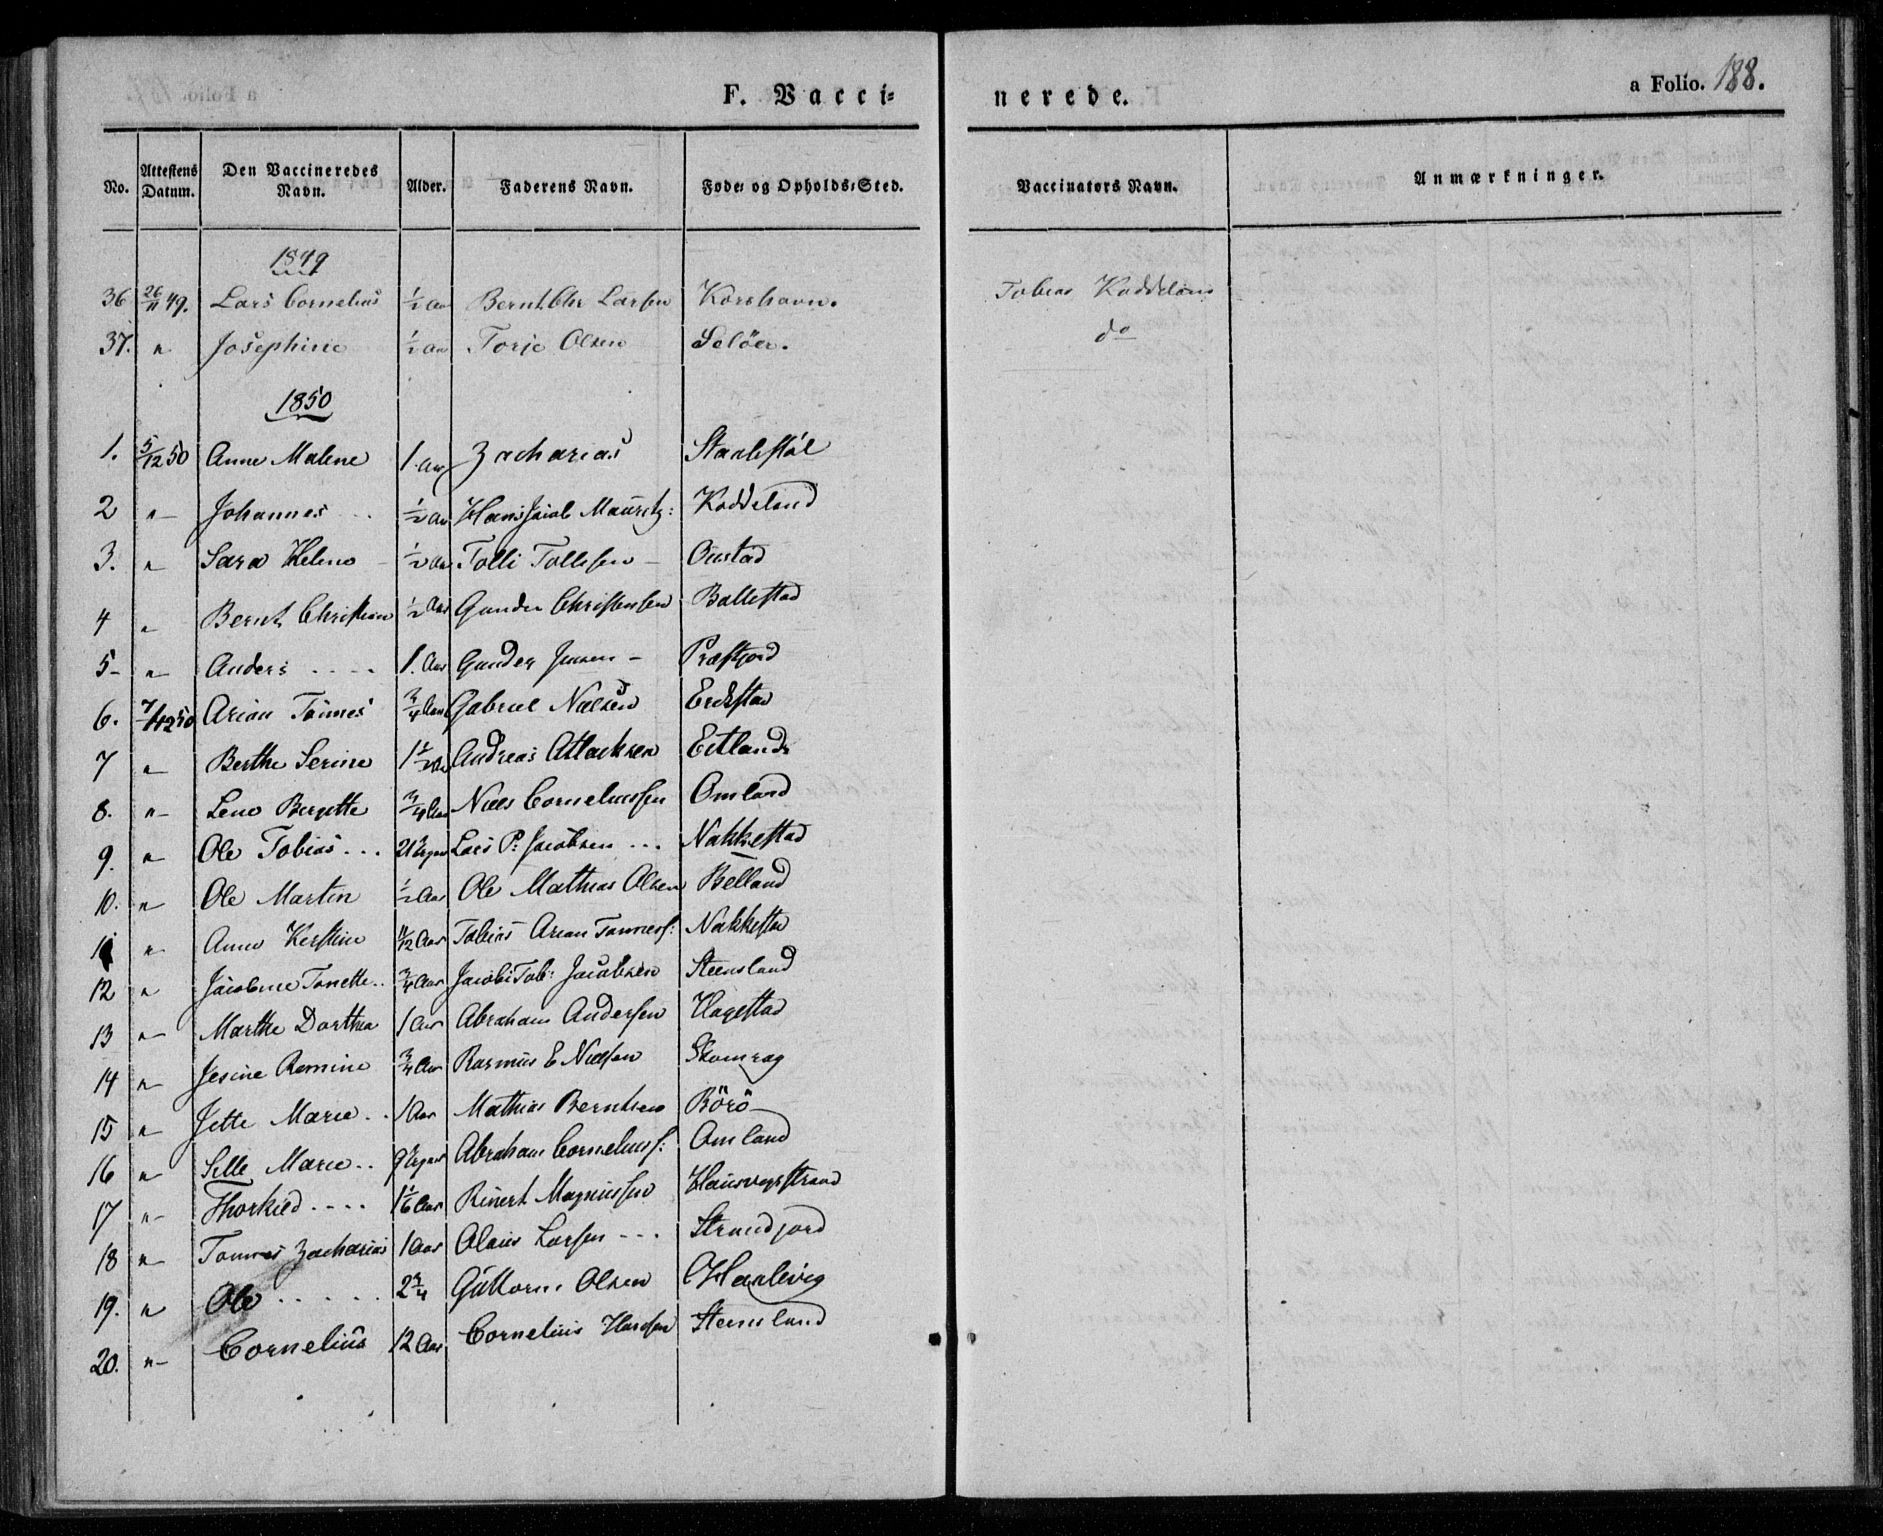 F. Vaccinerede.
a Folio. 188.
No. Attestens Datum. Den Vaccineredes Navn. Alder. Faderens Navn. Føde- og Opholds-Sted. Vaccinators Navn. Anmærkninger.
1849
36 26/11 49. Lars Cornelius 1/2 Aar Bernt Chr Larsen Korshavn. Tobias Koddeland
37. " Josephine 1/2 Aar Torje Olsen Selöer. do
1850
1. 5/12 50 Anne Malene 1. Aar Zacharias Staalestöl
2 " Johannes 1/2 Aar Hans Jacob Mauritz: Koddeland
3. " Sara Helene 1/2 Aar Tolli Tollefsen Oustad
4 " Bernt Christian 1/2 Aar Gunder Christensen Ballestad
5 " Anders 1. Aar Gunder Jensen Præstjord
6. 7/12 50 Arian Tönnes 3/4 Aar Gabriel Nielsen Erikstad
7 " Berthe Serine 1 1/2 Aar Andreas Atlacksen Eitland
8. " Lene Bergitte 3/4 Aar Niels Corneliussen Omland
9. " Ole Tobias 21 Uger Lars P. Jacobsen Nakkestad
10. " Ole Martin 1/2 Aar Ole Mathias Olsen Belland
11 " Anne Kerstine 11/12 Aar Tobias Arian Tonnesf: Nakkestad
12 " Jacobine Tonette 3/4 Aar Jacob Tob: Jacobsen Steensland
13 " Marthe Dorthea 1 Aar Abraham Andersen Hagestad
14 " Jesine Romine 3/4 Aar Rasmus E Nielsen Skomrag
15 " Jette Marie 1 Aar Mathias Berntsen Börö
16 " Sille Marie 9 Uger Abraham Corneliusf: Omland
17 " Thorkild 1 1/6 Aar Reinert Magnussen Hausvigstrand
18 " Tonnes Zacharias 1 Aar Olaus Larsen Strandjord
19. " Ole 2 3/4 Guttorm Olsen Haalevig
20. " Cornelius 12 Aar Cornelius Hansen Steensland